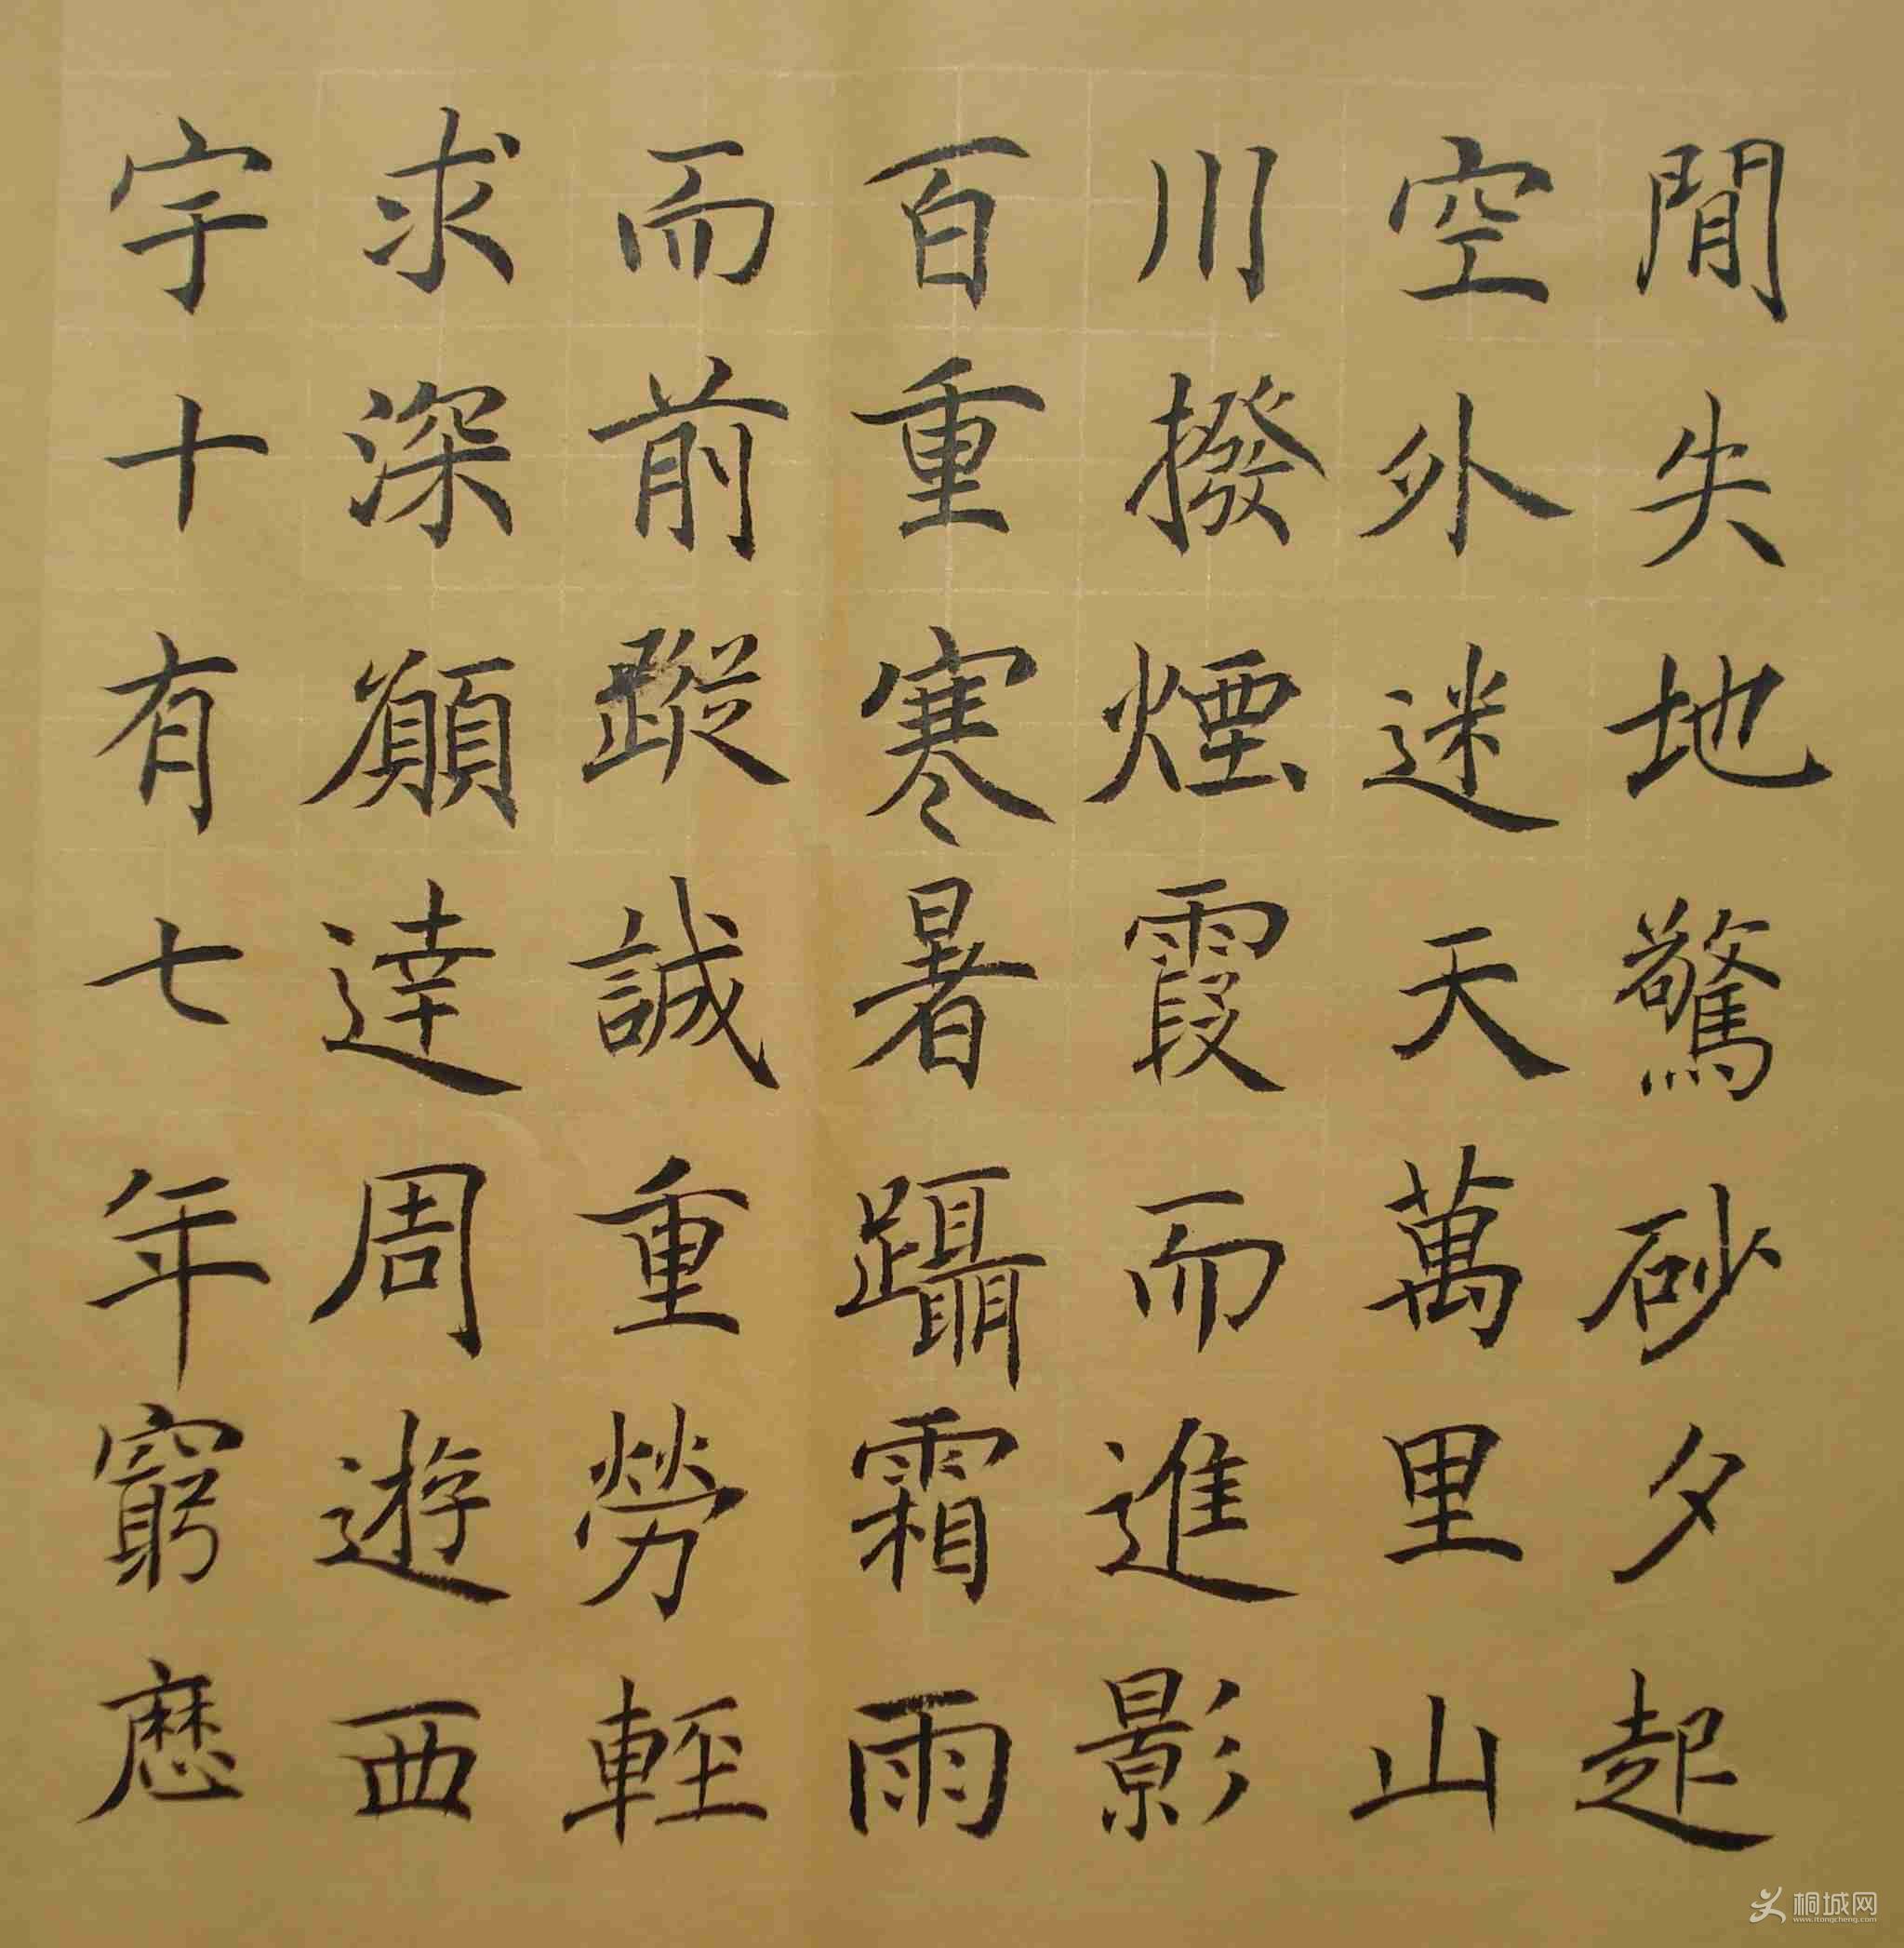 閒失地驚砂夕起
空外迷天萬里山
川撥煙霞而進影
百重寒暑躡霜雨
而前蹤誠重勞輕
求深願達周遊西
宇十有七年窮歷
桐城网
www.itongcheng.com